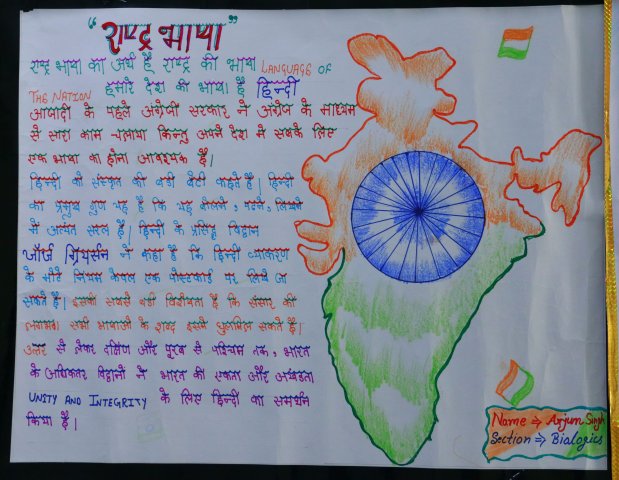 "राष्ट्र भाषा"
राष्ट्र भाषा का अर्थ है राष्ट्र की भाषा LANGUAGE OF
THE NATION हमारे देश की भाषा है हिन्दी
आजादी के पहले अंग्रेजी सरकार ने अंग्रेज के माध्यम
से सारा काम चलाया किन्तु अपने देश में सबके लिए
एक भाषा का होना आवश्यक है।
हिन्दी को संस्कृत की बडी बेटी कहते है। हिन्दी
का प्रमुख गुण यह है कि यह बोलने, पढने, लिखने
में अत्यंत सरल है। हिन्दी के प्रसिद्ध विद्वान
जॉर्ज ग्रियर्सन ने कहा है कि हिन्दी व्याकरण
के मोटे नियम केवल एक पोस्टकार्ड पर लिखे जा
सकते है। इसकी सबसे बडी विशेषता है कि संसार की
लगभग सभी भाषाओं के शब्द इसमे घुलमिल सकते है।
उत्तर से लेकर दक्षिण और पूरब से पश्चिम तक, भारत
के अधिकतर विद्वानों ने भारत की एकता और अखंडता
UNITY AND INTEGRITY के लिए हिन्दी का समर्थन
किया है।
Name ⇒ Arjun Singh
Section ⇒ Bialogics